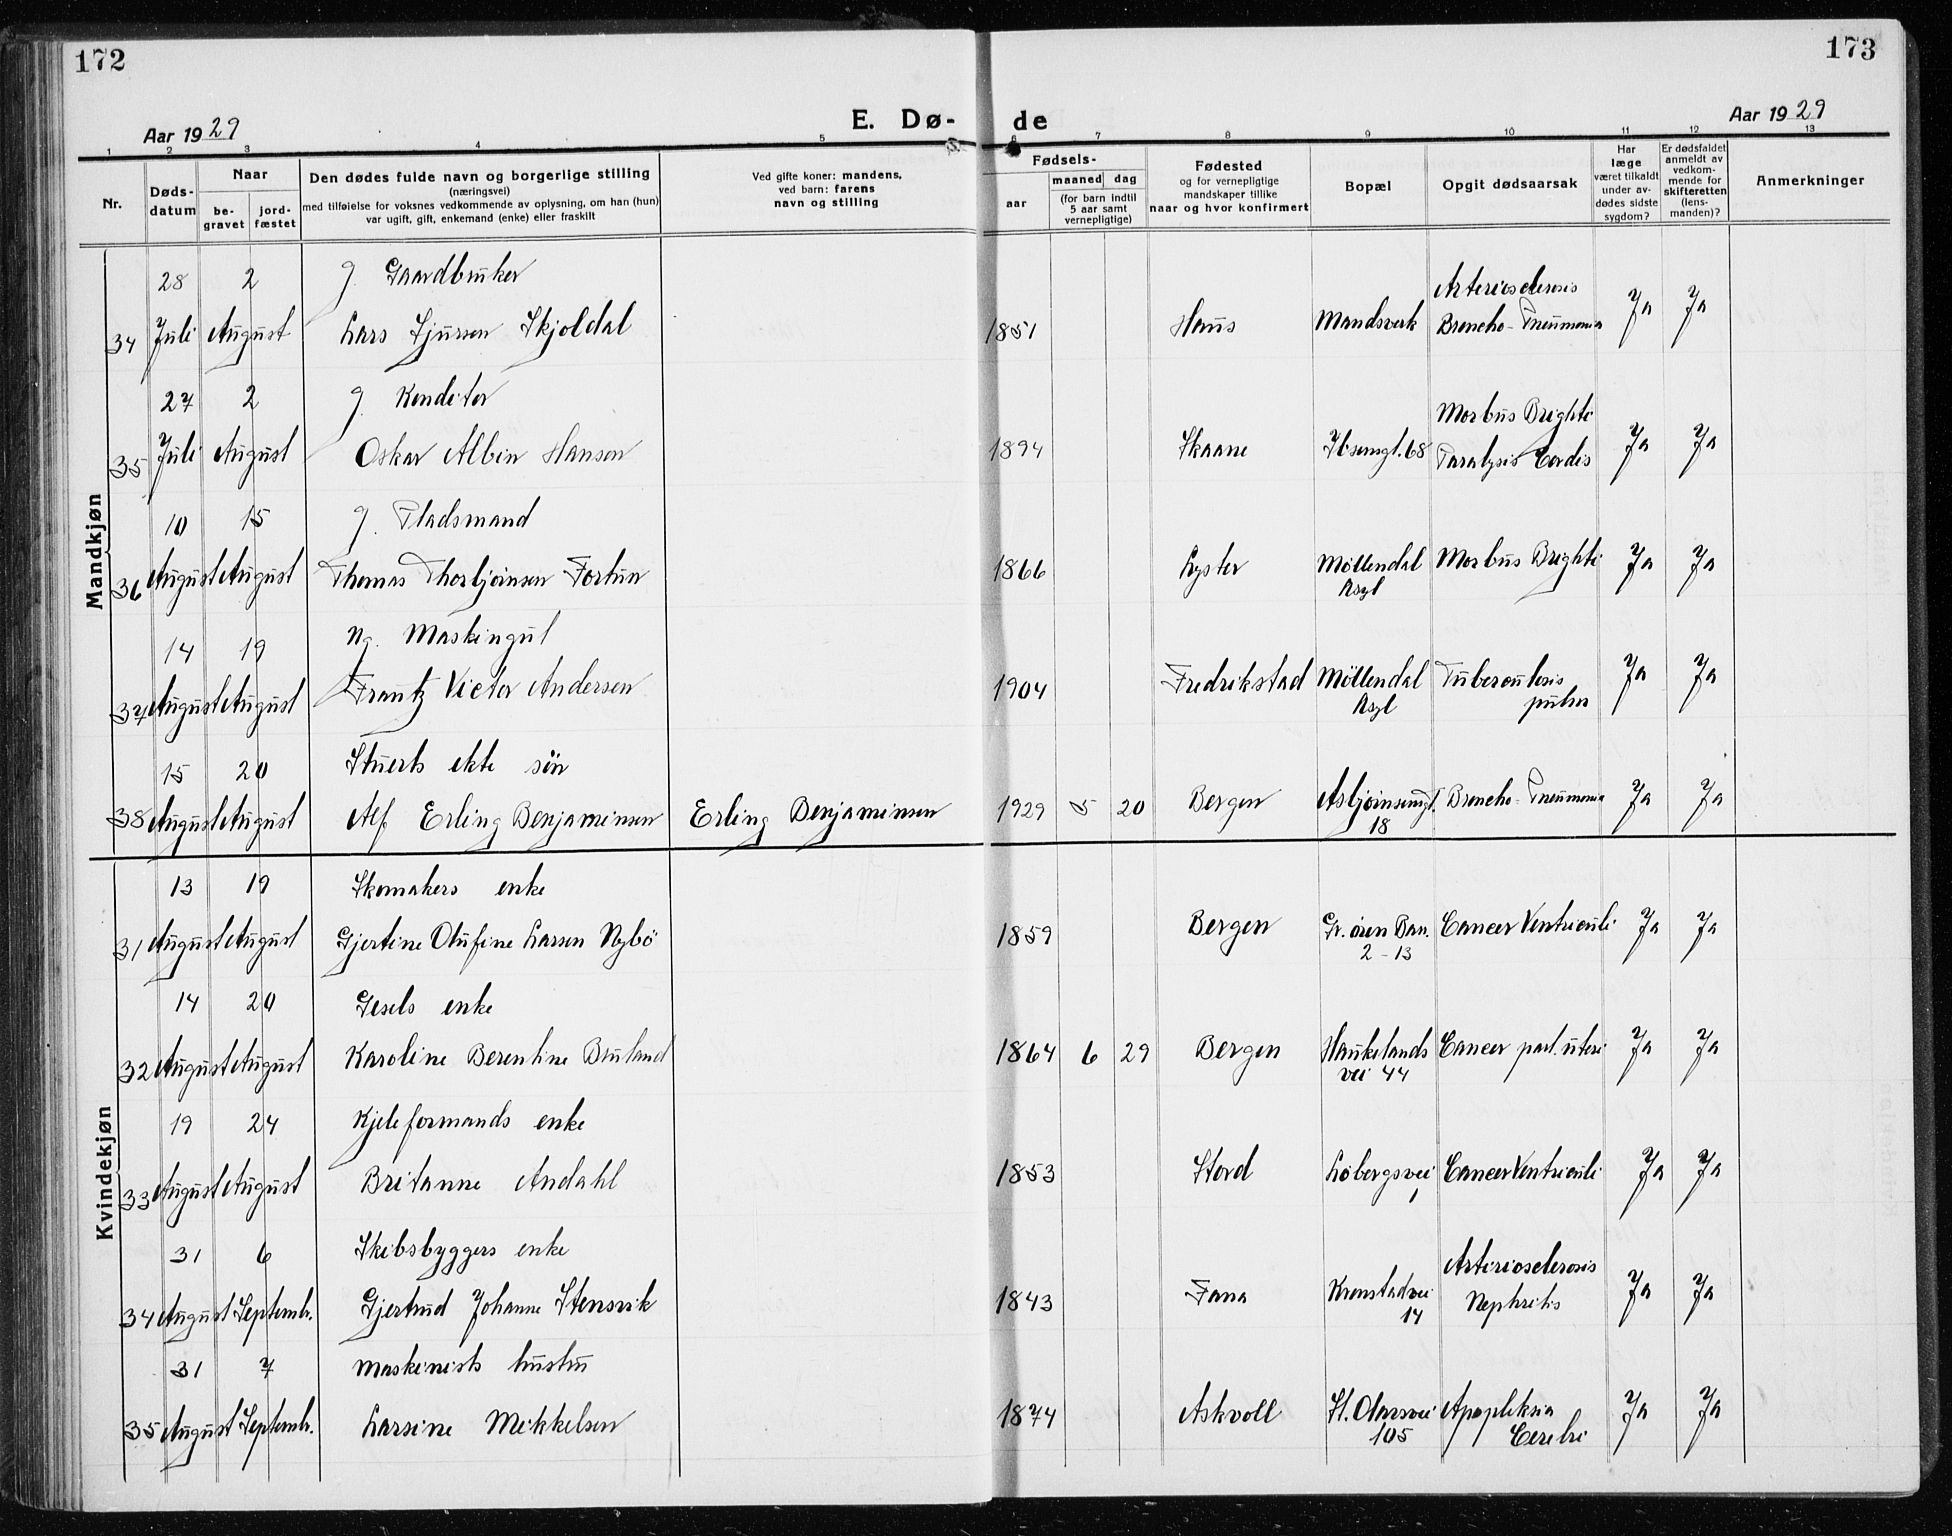 172
173
Aar 1929
E. Dø-
de
Aar 1929
1 2 3 4 5 6 7 8 9 10 11 12 13
Nr.
Døds-
datum
Naar
be-
gravet
jord-
fæstet
Den dødes fulde navn og borgerlige stilling
(næringsvei)
med tilføielse for voksnes vedkommende av oplysning, om han (hun)
var ugift, gift, enkemand (enke) eller fraskilt
Ved gifte koner: mandens,
ved barn: farens
navn og stilling
Fødsels-
aar
maaned
dag
(for barn indtil
5 aar samt
vernepligtige)
Fødested
og for vernepligtige
mandskaper tillike
naar og hvor konfirmert
Bopæl
Opgit dødsaarsak
Har
læge
været tilkaldt
under av-
dødes sidste
sygdom?
Er dødsfaldet
anmeldt av
vedkom-
mende for
skifteretten
(lens-
manden)?
Anmerkninger
Mandkjøn
28 2 g. Gaardbruker Arteriosclerosis
34 Juli August Lars Sjursen Skjoldal 1851 Haus Mandsverk Broncho-Pneumonia Ja Ja
27 2 g. Konditor Morbus Brighti
35 Juli August Oskar Albin Hansen 1894 Skaane Ibsensgt. 68 Paralysis Cordis Ja Ja
10 15 g. Pladsmand
36 August August Thomas Thorbjørnsen Fortun 1866 Lyster Möllendal Morbus Brighti Ja Ja
Asyl
14 19 ug. Maskingut
37 August August Frantz Victor Andersen 1904 Fredrikstad Möllendal Tuberculosis Ja Ja
Asyl pulm
15 20 Stuerts ekte sön
38 August August Alf Erling Benjaminsen Erling Benjaminsen 1929 5 20 Bergen Asbjörnsensgt. Broncho-Pneumonia Ja Ja
18
Kvindekjøn
13 19 Skomakers enke
31 August August Gjertine Olufine Larsen Nybö 1859 Bergen Cancer Ventriculi Ja Ja
2-13
14 20 Gesels enke
32 August August Karoline Berentine Bruland 1864 6 29 Bergen Haukelands Cancer port. uteri Ja Ja
vei 44
19 24 Kjeleformands enke
33 August August Britanne Andahl 1853 Stord Löbergsvei Cancer Ventriculi Ja Ja
1
31 6 Skibsbyggers enke Arteriosclerosis
34 August Septembr. Gjertrud Johanne Stensvik 1843 Fana Kronstadvei Nephritis Ja Ja
14
31 7 Maskinists hustru
35 August Septembr. Larsine Mikkelsen 1874 Askvoll St. Olavsvei Apopleksia Ja Ja
105 Cerebri